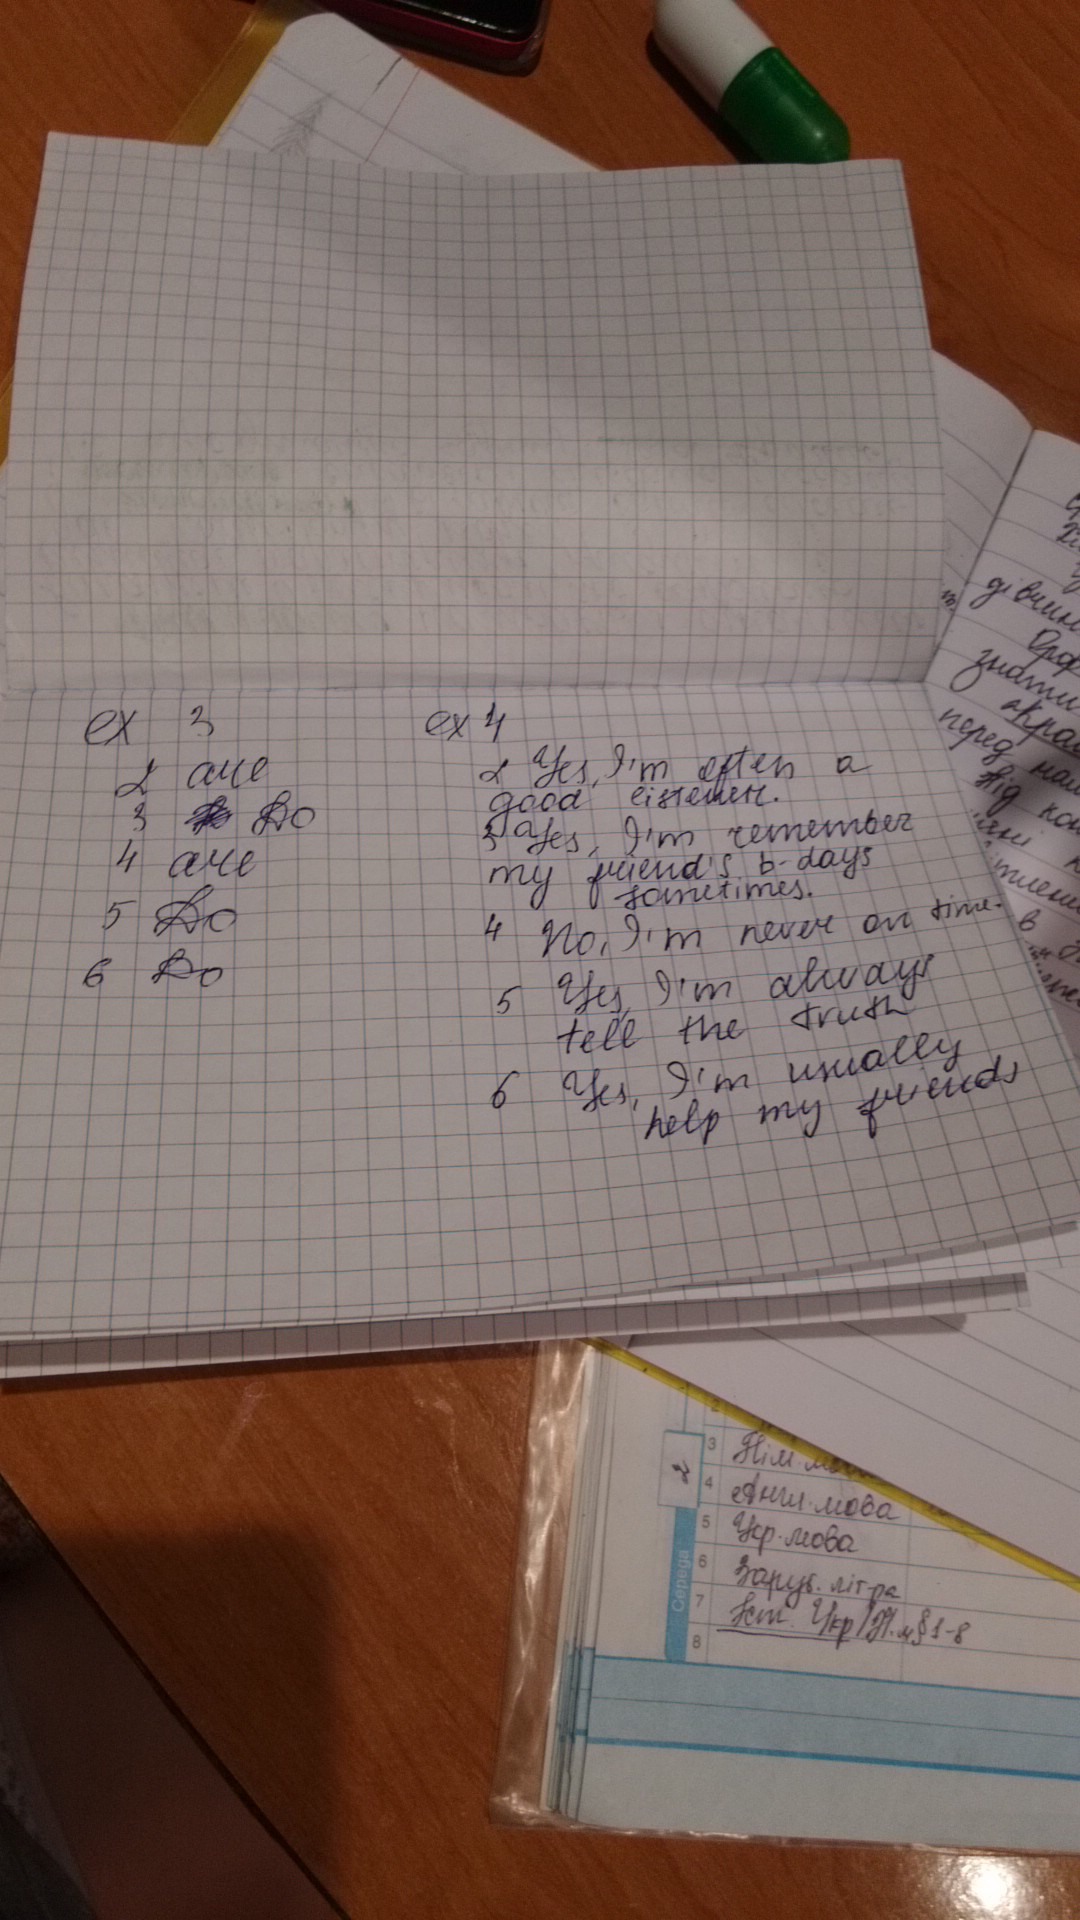 ex 3
2 are
3 Do
4 are
5 Do
6 Do
ex 4
2 Yes, I'm often a
good listener.
3 Yes, I'm remember
my friend's b-days
sometimes.
4 No, I'm never on time.
5 Yes, I'm always
tell the truth
6 Yes, I'm usually
help my friends
дівчин
знати
перед нам
від
в
2
3 Нім.
4 Англ. мова
5 Укр. мова
6 Заруб. літ-ра
7 Іст. Укр §1-8
8
2
Середа